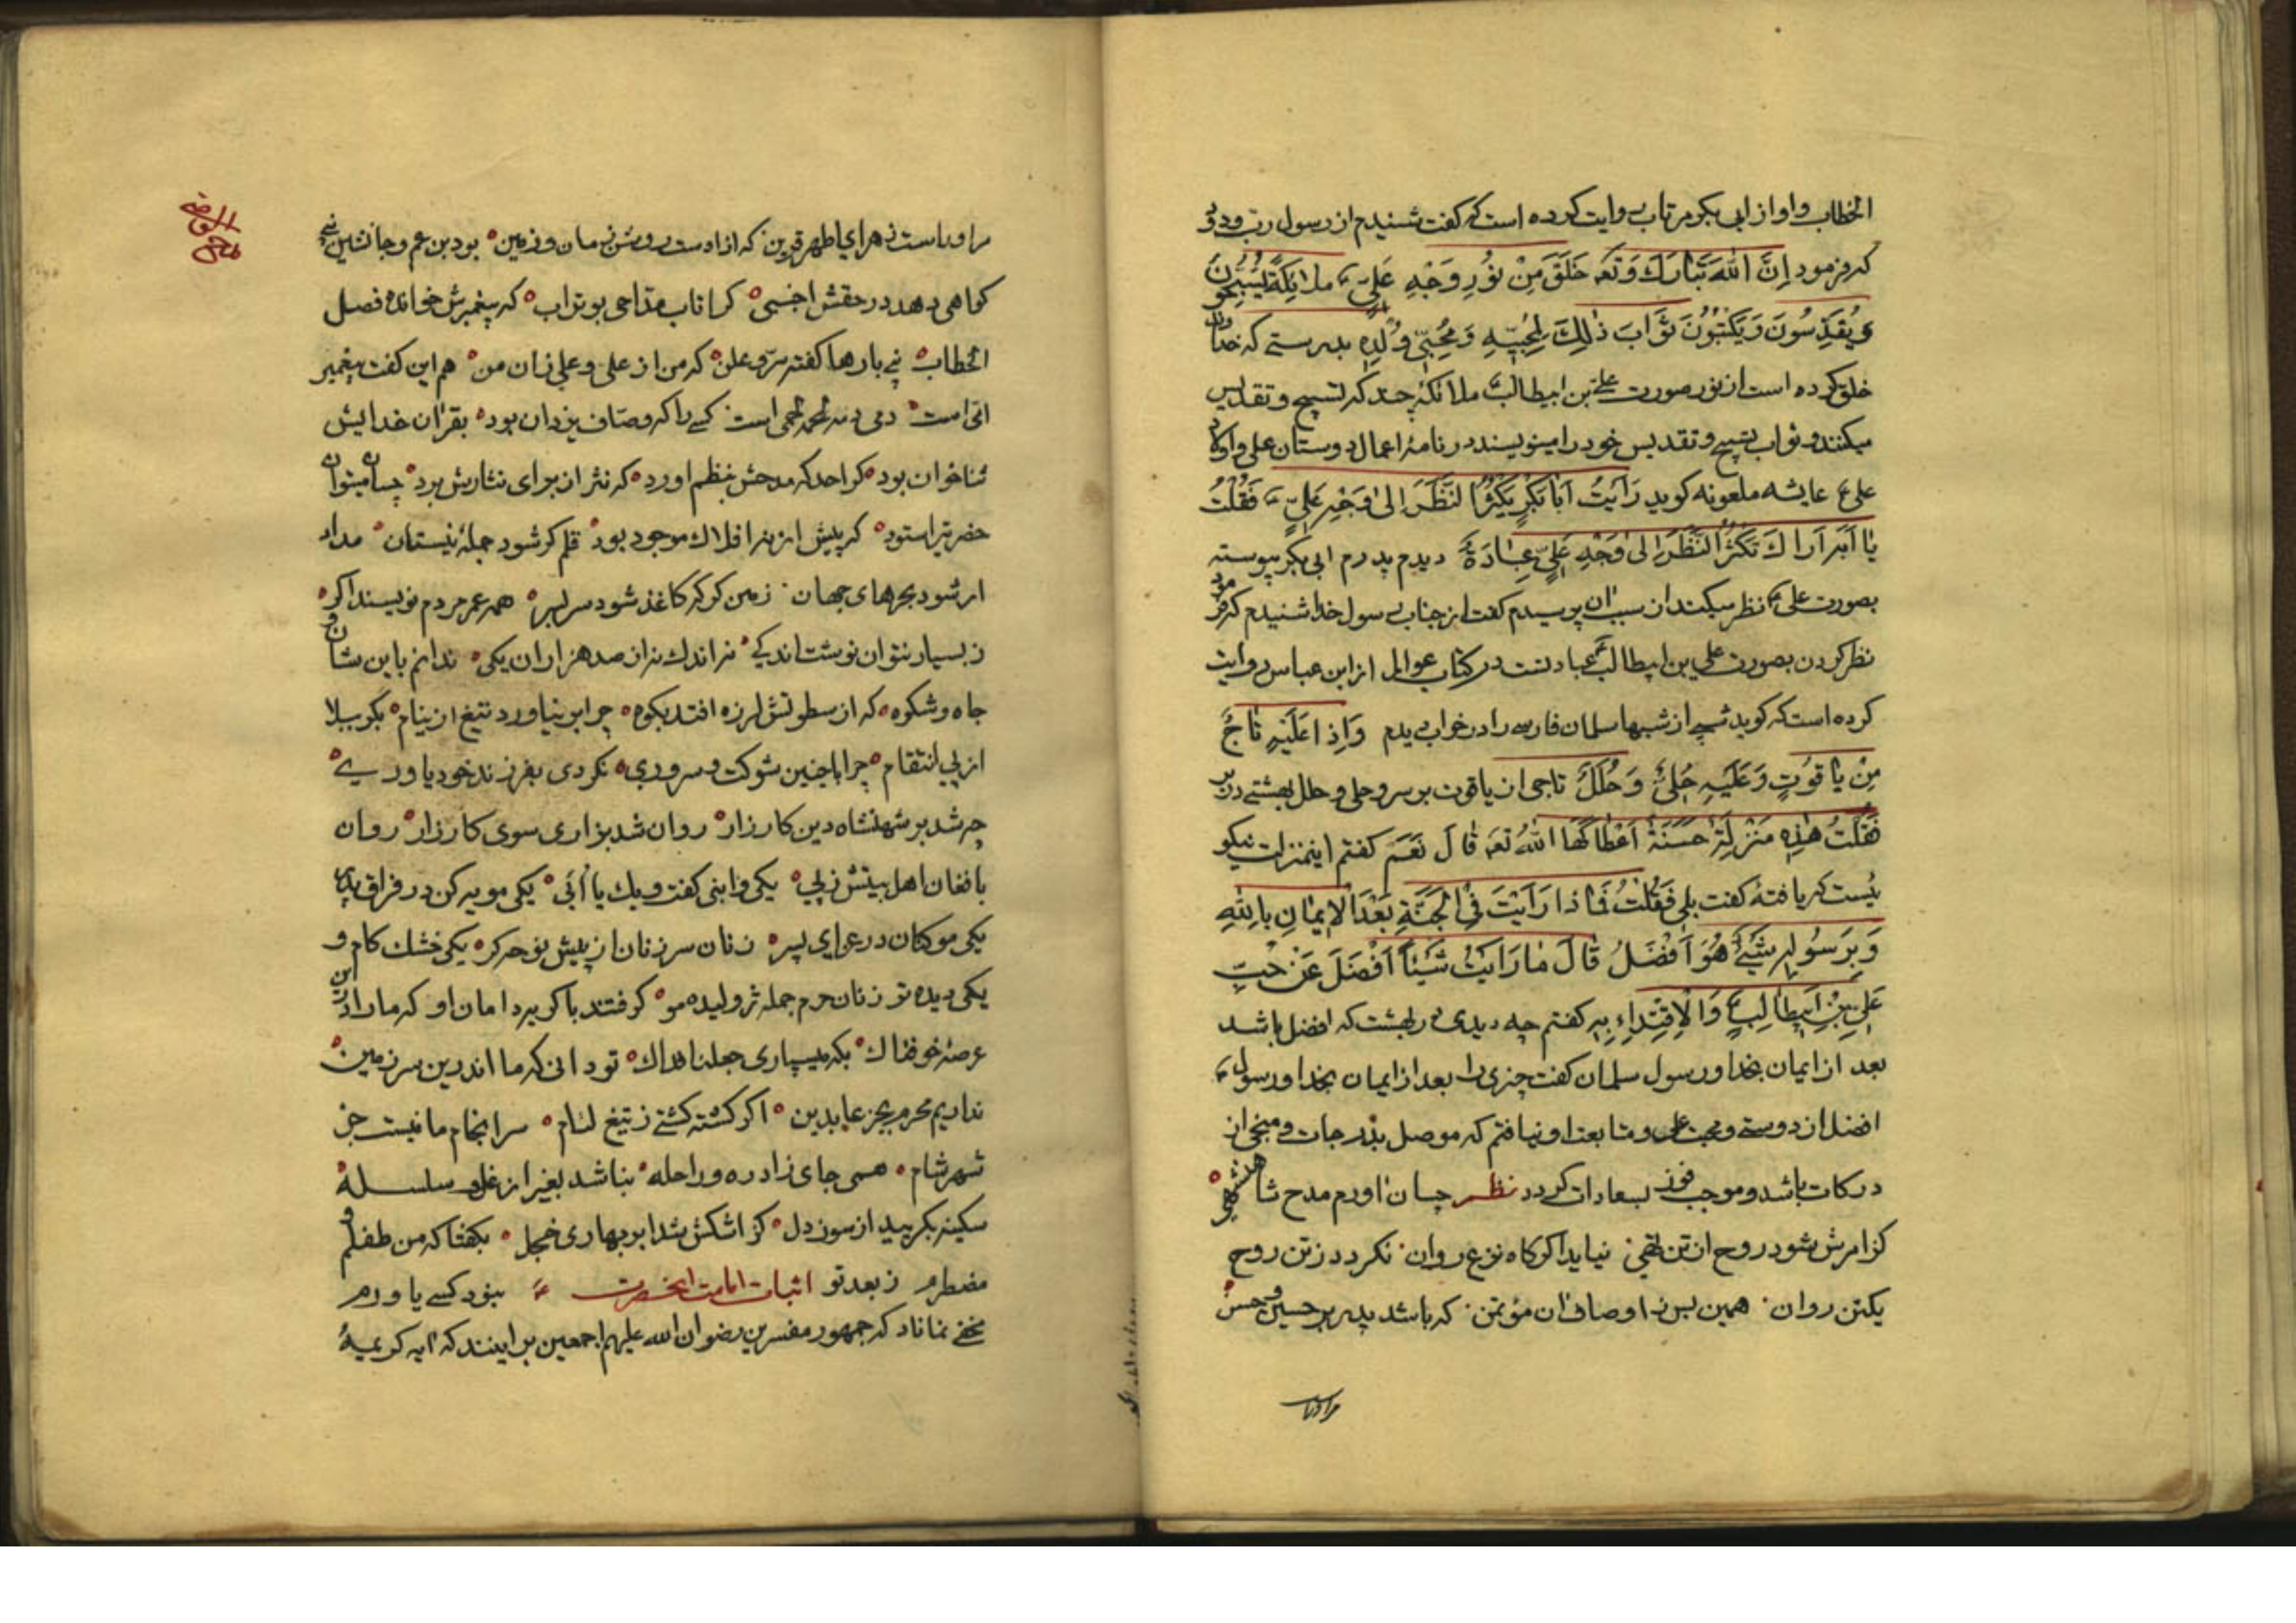 الخطاب و او از ابی بکر مرتاب روایت کرده است که گفت شنیدم از رسول رب ودود
که فرمود اِنَّ اللهَ تَبارَكَ وَتَعه خَلَقَ مِنْ نُورِ وَجْهِ عَلِيٍّ ع مَلائِكَةً يُسَبِّحُونَ
وَيُقَدِّسُونَ وَيَكْتُبُونَ ثَوَّابَ ذٰلِكَ لِمُحِبّيهِ وَمُحِبّي وُلْدِهِ بدرستی که خدا
خلق کرده است از نور صورت علی بن ابیطالب ملائکهٔ چند که تسبیح و تقدیس
میکنند و ثواب تسبیح و تقدیس خود را مینویسند در نامهٔ اعمال دوستان علی و اولاد
علی ع عایشه ملعونه گوید رَاَیْتُ اَبابَکْرٍ یَکْثُرُ النَّظَرَ اِلیٰ وَجْهِ عَلِیٍّ ع فَقُلْتُ
یا اَبَه اَراكَ تَکْثُرُ النَّظَرَ اِلیٰ وَجْهِ عَلِیٍّ عِبادَةٌ دیدم پدرم ابی بکر پیوسته
بصورت علی ع نظر میکند از سبب ان پرسیدم گفت از جناب رسول خدا شنیدم که فرمود
نظر کردن بصورت علی بن ابیطالب ع عبادتست در کتاب عوالم از ابن عباس روایت
کرده است که گوید شبی از شبها سلمان فارسی را در خواب دیدم وَاِذا عَلَیْهِ تاجٌ
مِنْ یاقُوتٍ وَعَلَیْهِ حُلِیٌّ وَحُلَلٌ تاجی از یاقوت بر سر و حلی و حلل بهشتی در بر
فَقُلْتُ هٰذِهِ مَنْزِلَةٌ حَسَنَةٌ اَعْطاکَهَا اللهُ تعه قالَ نَعَم گفتم این منزلت نیکو
نیست که یافتهٔ گفت بلی فَقُلْتُ فَماذا رَاَیْتَ فِی الْجَنَّةِ بَعْدَ الْاِیمانِ بِاللهِ
وَبِرَسُولِهِ شَیْئٌ هُوَ اَفْضَلُ قالَ ما رَاَیْتُ شَیْئاً اَفْضَلَ عَنْ حُبِّ
عَلِیِّ بْنِ اَبیطالِبٍ ع وَالْاِقْتِداءِ بِهِ گفتم چه دیدی در بهشت که افضل باشد
بعد از ایمان بخدا و رسول سلمان گفت چیزی را بعد از ایمان بخدا و رسول ع
افضل از دوستی و محبت علی و متابعت او نیافتم که موصل بدرجات و منجی از
درکات باشد و موجب فوز بسعادات گردد نظم چسان اورم مدح شاهنشهی
کز امرش شود روح از تن تهی نیاید اگر گاه نزع روان نگردد ز تن روح
یکتن روان همین بس ز اوصاف ان مؤتمن که باشد پدر بر حسین و حسن
مر اوراست
مر اوراست زهرای اطهر قرین که از اوست روشن زمان و زمین بود بن عم و جانشین نبی
گواهی دهد در حقش اجنبی کرا تاب مداحی بوتراب که پیغمبرش خوانده فصل
الخطاب نبی بارها گفته سرّ و علن که من از علی و علی زان من هم این گفت پیغمبر
امی است دمی دمه لحمه لحمی است کسی را که وصاف یزدان بود بقران خدایش
ثناخوان بود کرا حد که مدحش بنظم اورد که نثر از برای نثارش برد چسان میتوان
حضرتی را ستود که پیش از نه افلاك موجود بود قلم گر شود جملهٔ نیستان مداد
ار شود بحرهای جهان زمین گر که کاغذ شود سر بسر همه عمر مردم نویسند اگر
ز بسیار نتوان نوشت اندکی نه اندك نه از صد هزاران یکی ندانم باین شان و
جاه و شکوه که از سطوتش لرزه افتد بکوه چرا بر نیاورد تیغ از نیام بکربلا
از پی انتقام چرا با چنین شوکت و سروری نکردی بفرزند خود یاوری
چه شد بر شهنشاه دین کارزار روان شد بزاری سوی کارزار روان
با فغان اهل بیتش ز پی یکی وا ابنی گفت و یك یا اَبی یکی مویه کن در فراق پدر
یکی موکنان در عزای پسر زنان سر زنان از پیش نوحه گر یکی خشك کام و
یکی دیده تر زنان حرم جمله ژولیده مو گرفتند با گریه دامان او که ما را در این
عرصهٔ خوفناك بکه میسپاری جعلنا فداك تو دانی که ما اندرین سرزمین
نداریم محرم بجز عابدین اگر کشته گشتی ز تیغ لئام سرانجام ما نیست جز
شهر شام همی جای زاد ره و راحله نباشد بغیر از غل و سلسله
سکینه بگریید از سوز دل کز اشکش شد ابر بهاری خجل بگفتا که من طفلم و
مضطرم ز بعد تو اثبات امامت انحضرت ع نبود کسی یاورم
مخفی نماناد که جمهور مفسرین رضوان الله علیهم اجمعین بر اینند که ایه کریمهٔ